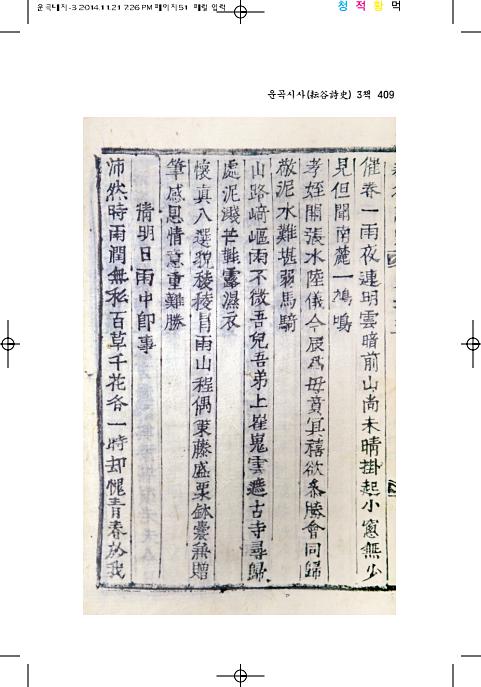 운곡내지-3 2014.11.21 7:26 PM 페이지51 매킬 입력
청 적 황 먹
운곡시사(耘谷詩史) 3책 409
催春一雨夜連明雲暗前山尚未晴掛起小窓無少
見但聞南麓一鳩鳴
孝姪開張水陸儀今辰爲母賁冥禧欲叅勝會同歸
敬泥水難堪弱馬騎
山路崎嶇雨不微吾兒吾弟上崔嵬雲遮古寺尋歸
處泥濺芒鞋露濕衣
懷眞八選貌稜稜冐雨山程偶東藤盛粟鉢囊兼贈
筆感恩情意重難勝
淸明日雨中卽事
沛然時雨潤無私百草千花各一時却愧青春於我